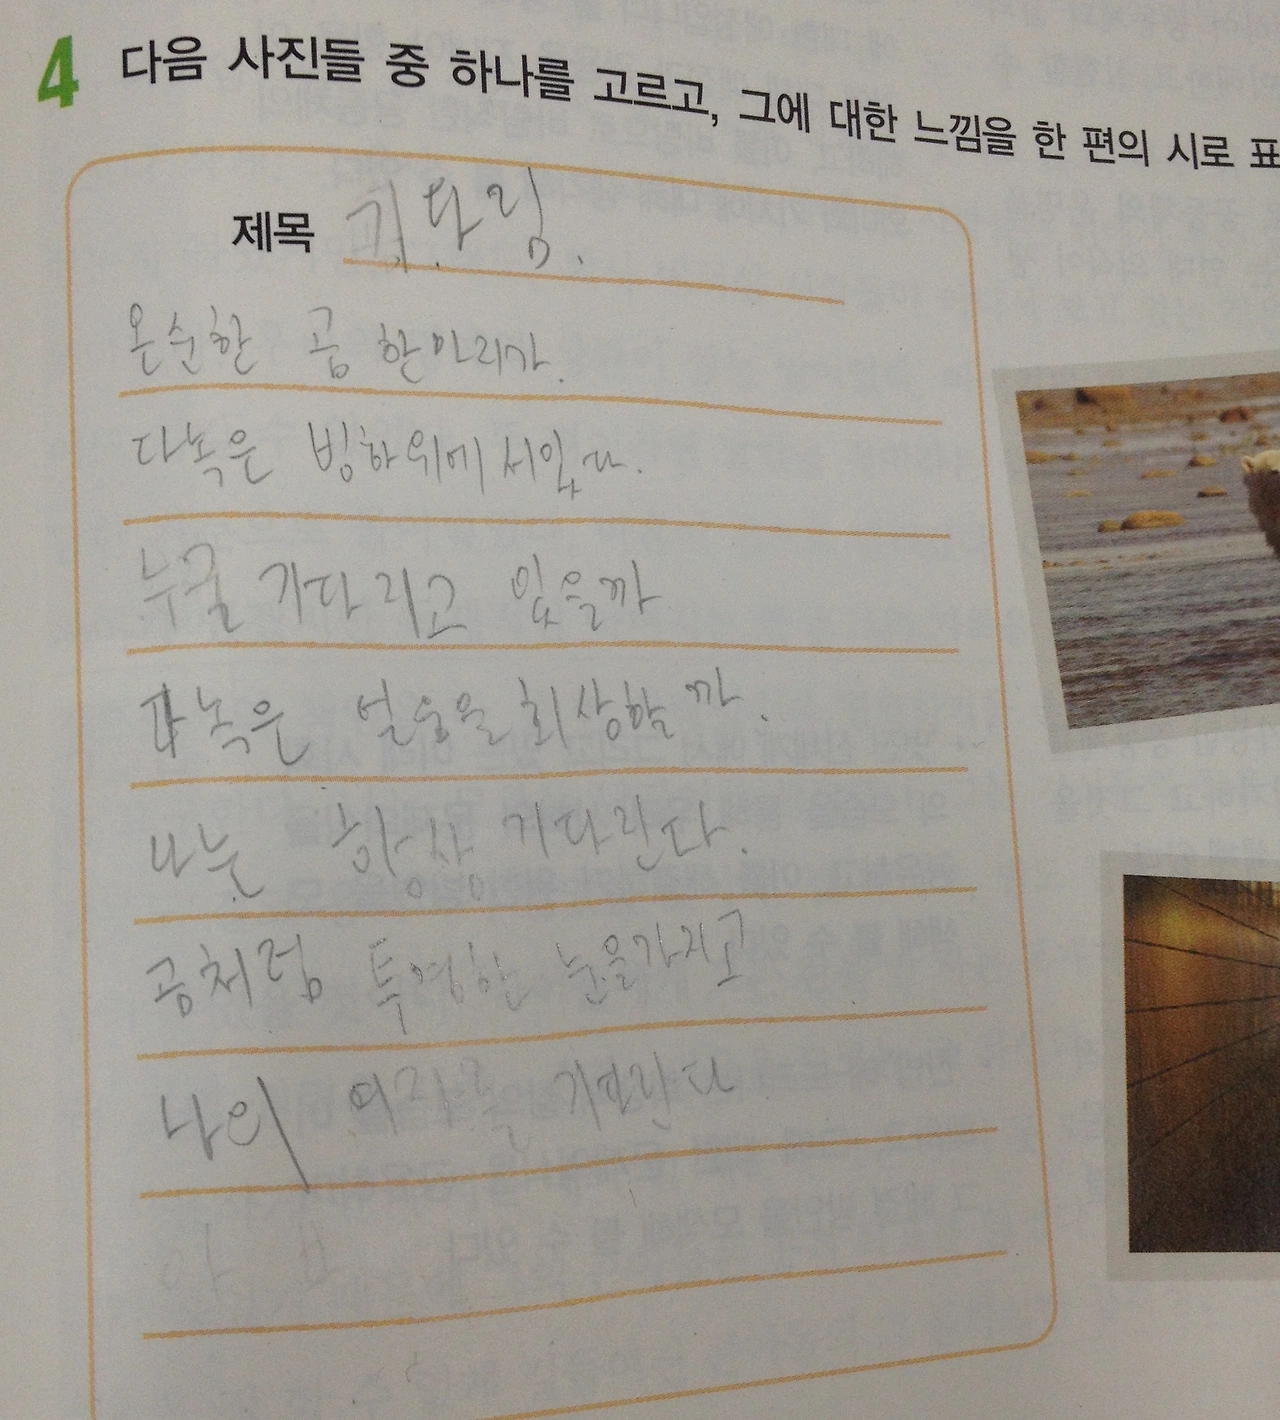 4 다음 사진들 중 하나를 고르고, 그에 대한 느낌을 한 편의 시로 표
제목 기다림.
온순한 곰 한마리가.
다녹은 빙하위에 서있다.
누굴 기다리고 있을까
다녹은 얼음을 회상할까.
나는 항상 기다린다.
곰처럼 투명한 눈을가지고
나의 기다린다